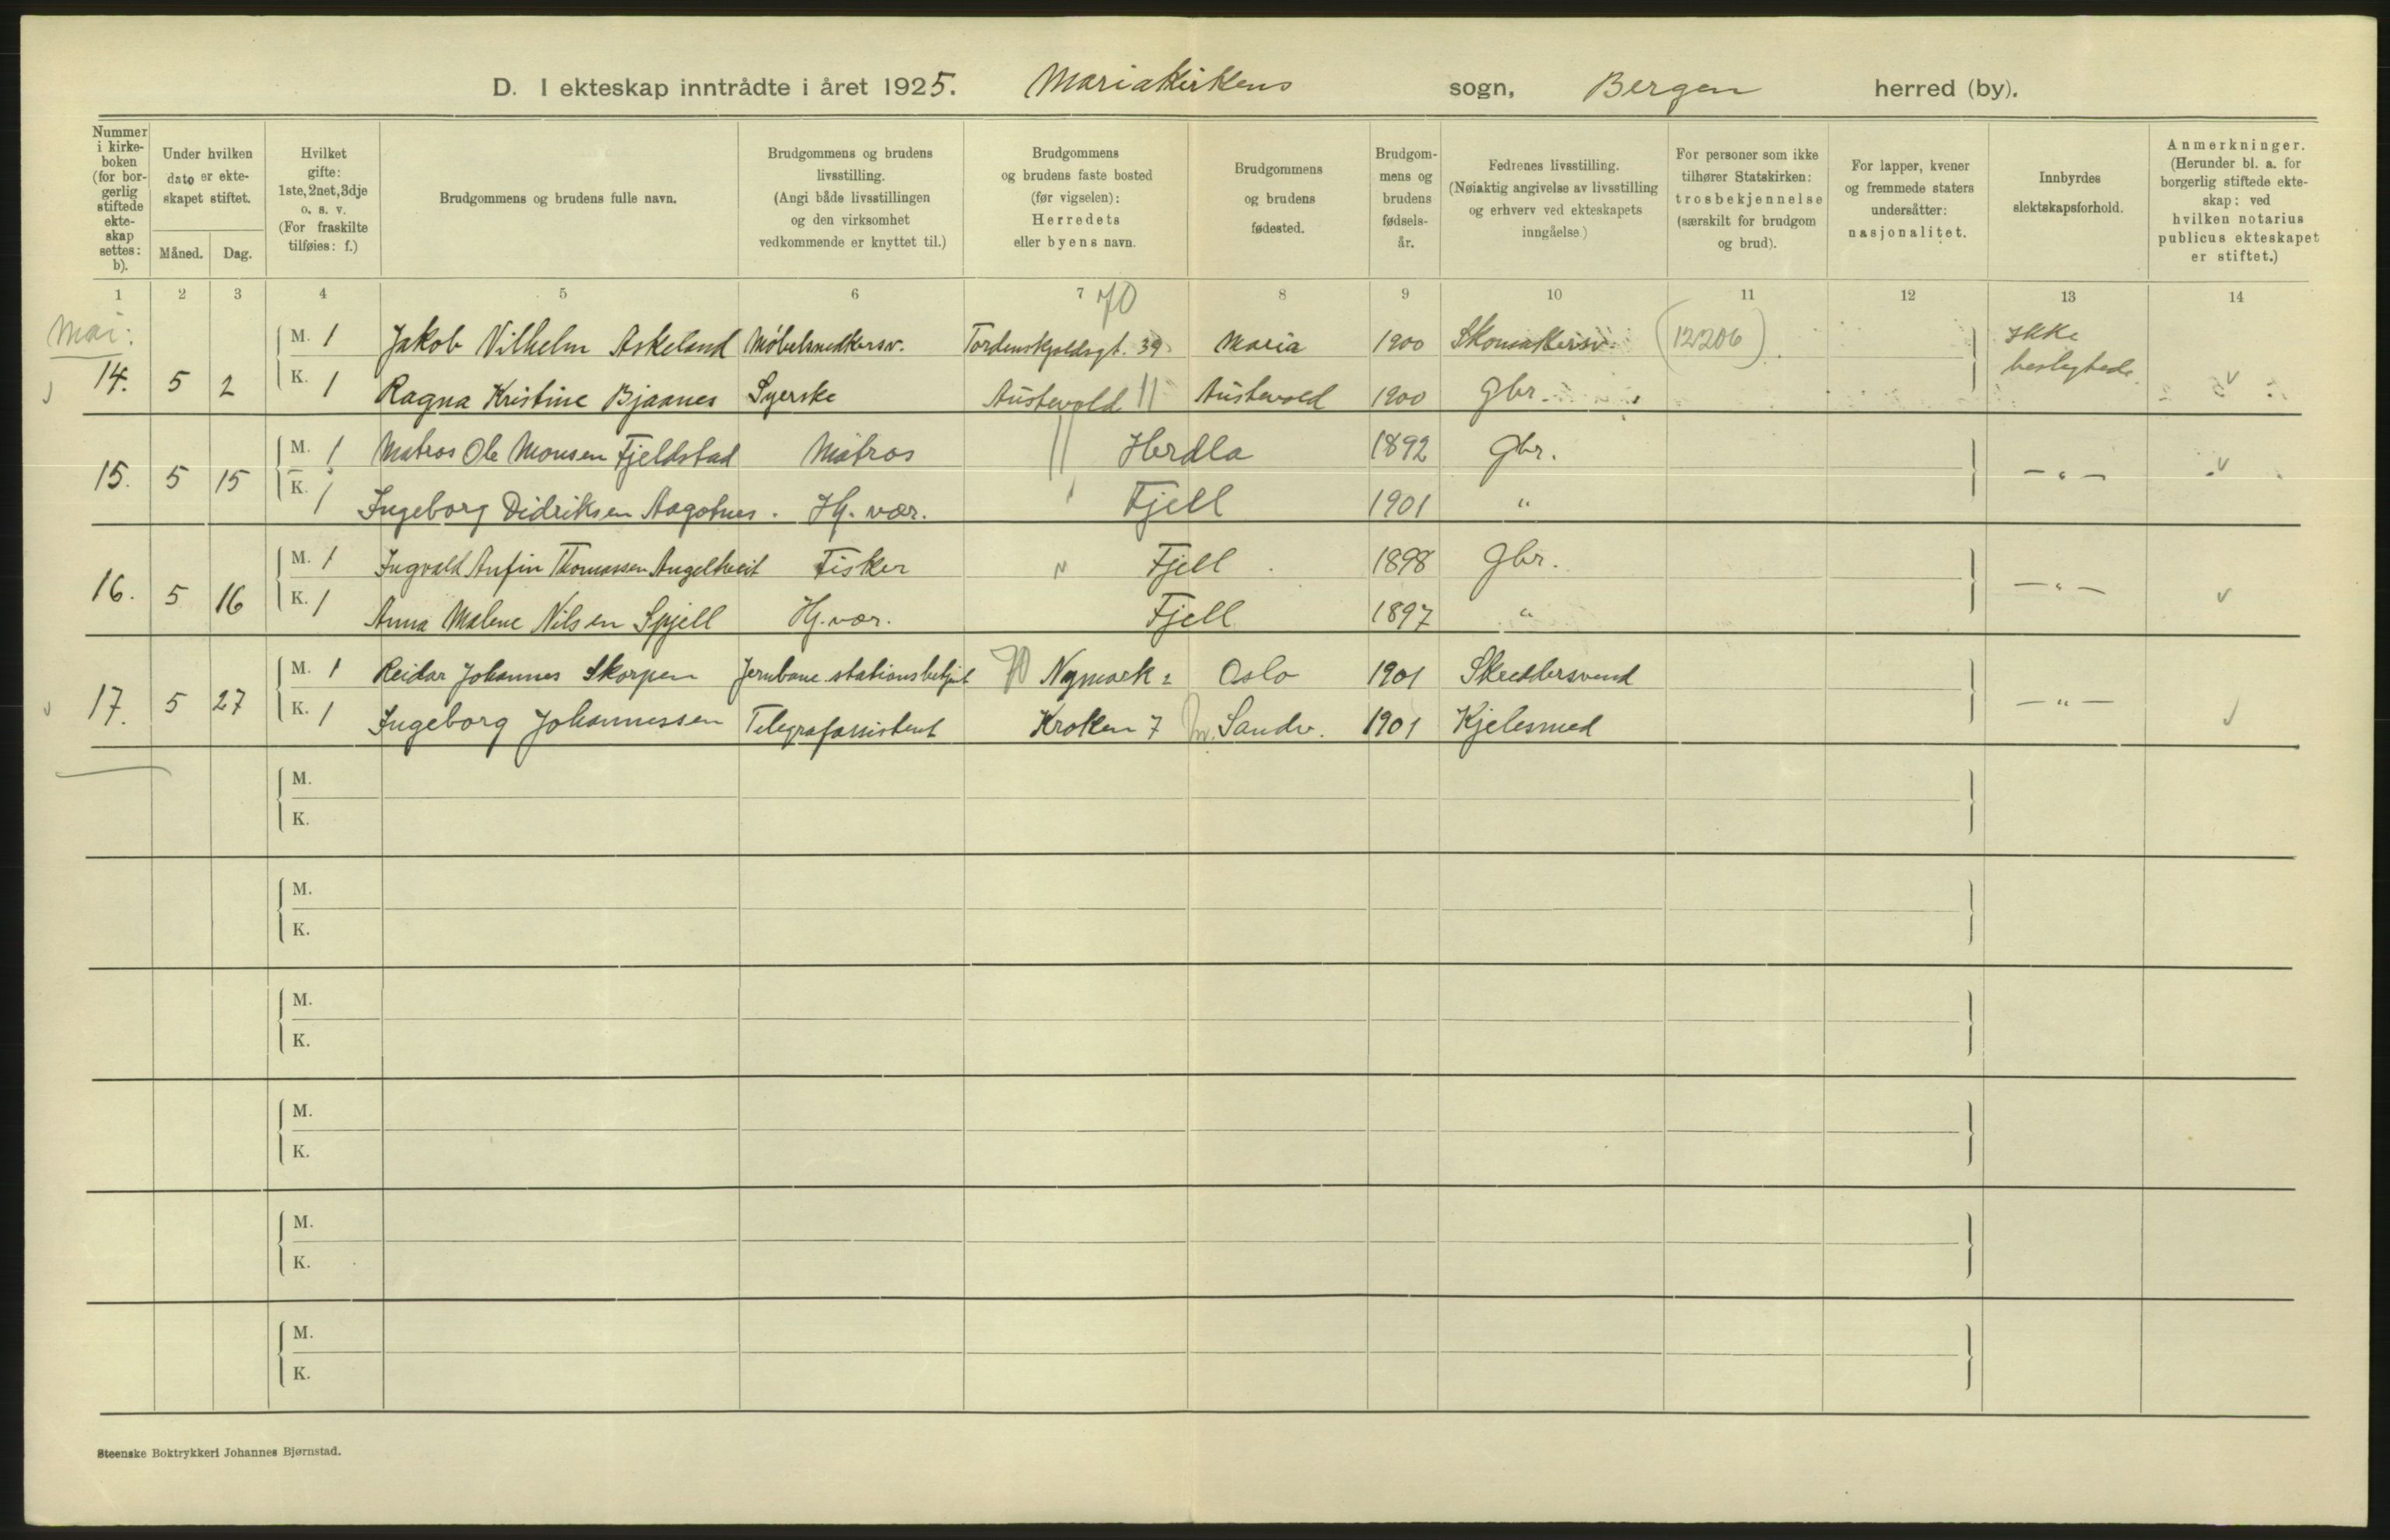 D. I ekteskap inntrådte i året 1925. Mariakirkens sogn, Bergen herred (by).
Nummer i kirke-boken (for bor-gerlig stiftede ekte-skap settes: b).
Under hvilken dato er ekte-skapet stiftet.
Måned. Dag.
Hvilket gifte: 1ste, 2net, 3dje o. s. v. (For fraskilte tilføies: f.)
Brudgommens og brudens fulle navn.
Brudgommens og brudens livsstilling. (Angi både livsstillingen og den virksomhet vedkommende er knyttet til.)
Brudgommens og brudens faste bosted (før vigselen): Herredets eller byens navn.
Brudgommens og brudens fødested.
Brudgom-mens og brudens fødsels-år.
Fedrenes livsstilling. (Nøiaktig angivelse av livsstilling og erhverv ved ekteskapets inngåelse.)
For personer som ikke tilhører Statskirken: trosbekjennelse (særskilt for brudgom og brud).
For lapper, kvener og fremmede staters undersåtter: nasjonalitet.
Innbyrdes slektskapsforhold.
Anmerkninger. (Herunder bl. a. for borgerlig stiftede ekte-skap: ved hvilken notarius publicus ekteskapet er stiftet.)
1 2 3 4 5 6 7 8 9 10 11 12 13 14
Mai: 70
14. 5 2 M. 1 Jakob Vilhelm Askeland Møbelsnedkersv. Tordenskjoldsgt. 39 Maria 1900 Skomakersv. (12206) Ikke beslegtede
K. 1 Ragna Kristine Bjaanes Syerske Austevold 11 Austevold 1900 Gbr.
15. 5 15 M. 1 Matros Ole Monsen Fjeldstad Matros 11 Herdla 1892 Gbr. – " –
K. 1 Ingeborg Didriksen Aagotnes. Hj. vær. Fjell 1901 "
16. 5 16 M. 1 Ingvald Anfin Thomassen Angeltveit Fisker " Fjell 1898 Gbr. – " –
K. 1 Anna Malene Nilsen Spjell Hj. vær. Fjell 1897 "
17. 5 27 M. 1 Reidar Johannes Skorpen Jernbane stationsbetjent 70 Nymark 2 Oslo 1901 Skreddersvend – " –
K. 1 Ingeborg Johannessen Telegrafassistent Kroken 7 Sandv. 1901 Kjelesmed
M.
K.
M.
K.
M.
K.
M.
K.
M.
K.
M.
K.
Steenske Boktrykkeri Johannes Bjørnstad.